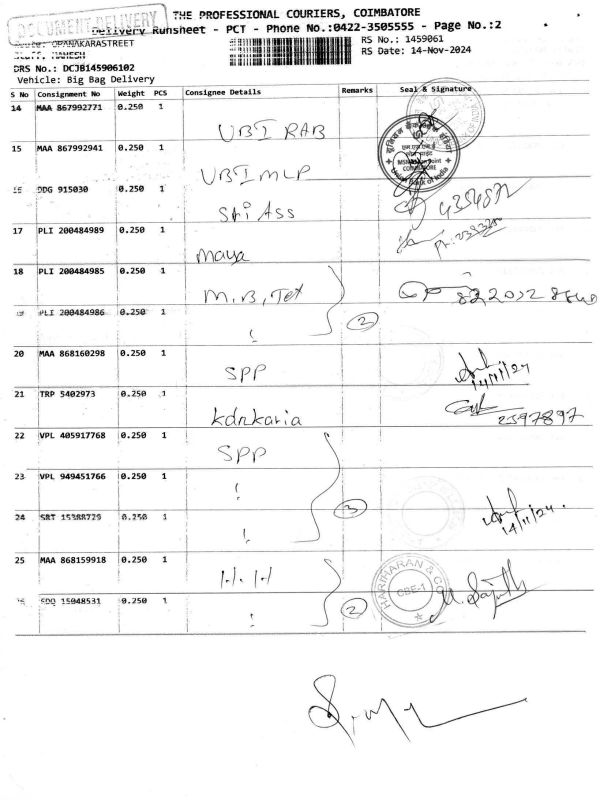 DOCUMENT DELIVERY
THE PROFESSIONAL COURIERS, COIMBATORE
Delivery Runsheet - PCT - Phone No.:0422-3505555 - Page No.:2
Route: OPANAKARASTREET
RS No.: 1459061
RS Date: 14-Nov-2024
DRS No.: DCJB145906102
Vehicle: Big Bag Delivery
S No Consignment No Weight PCS Consignee Details Remarks Seal & Signature
14 MAA 867992771 0.250 1
UBI RAB
15 MAA 867992941 0.250 1
UBI MLP
DDG 915030 0.250 1
Sri Ass
17 PLI 200484989 0.250 1
Maya
18 PLI 200484985 0.250 1
M.B, Tex
PLI 200484986 0.250 1
2
20 MAA 868160298 0.250 1
SPP 14/11/24
21 TRP 5402973 0.250 1
Kdrkaria 2397897
22 VPL 405917768 0.250 1
SPP
23 VPL 949451766 0.250 1
3
24 SRT 15388729 0.250 1
14/11/24.
25 MAA 868159918 0.250 1
H.H
HARIHARAN & CO
CBE-1
0.250 1
2